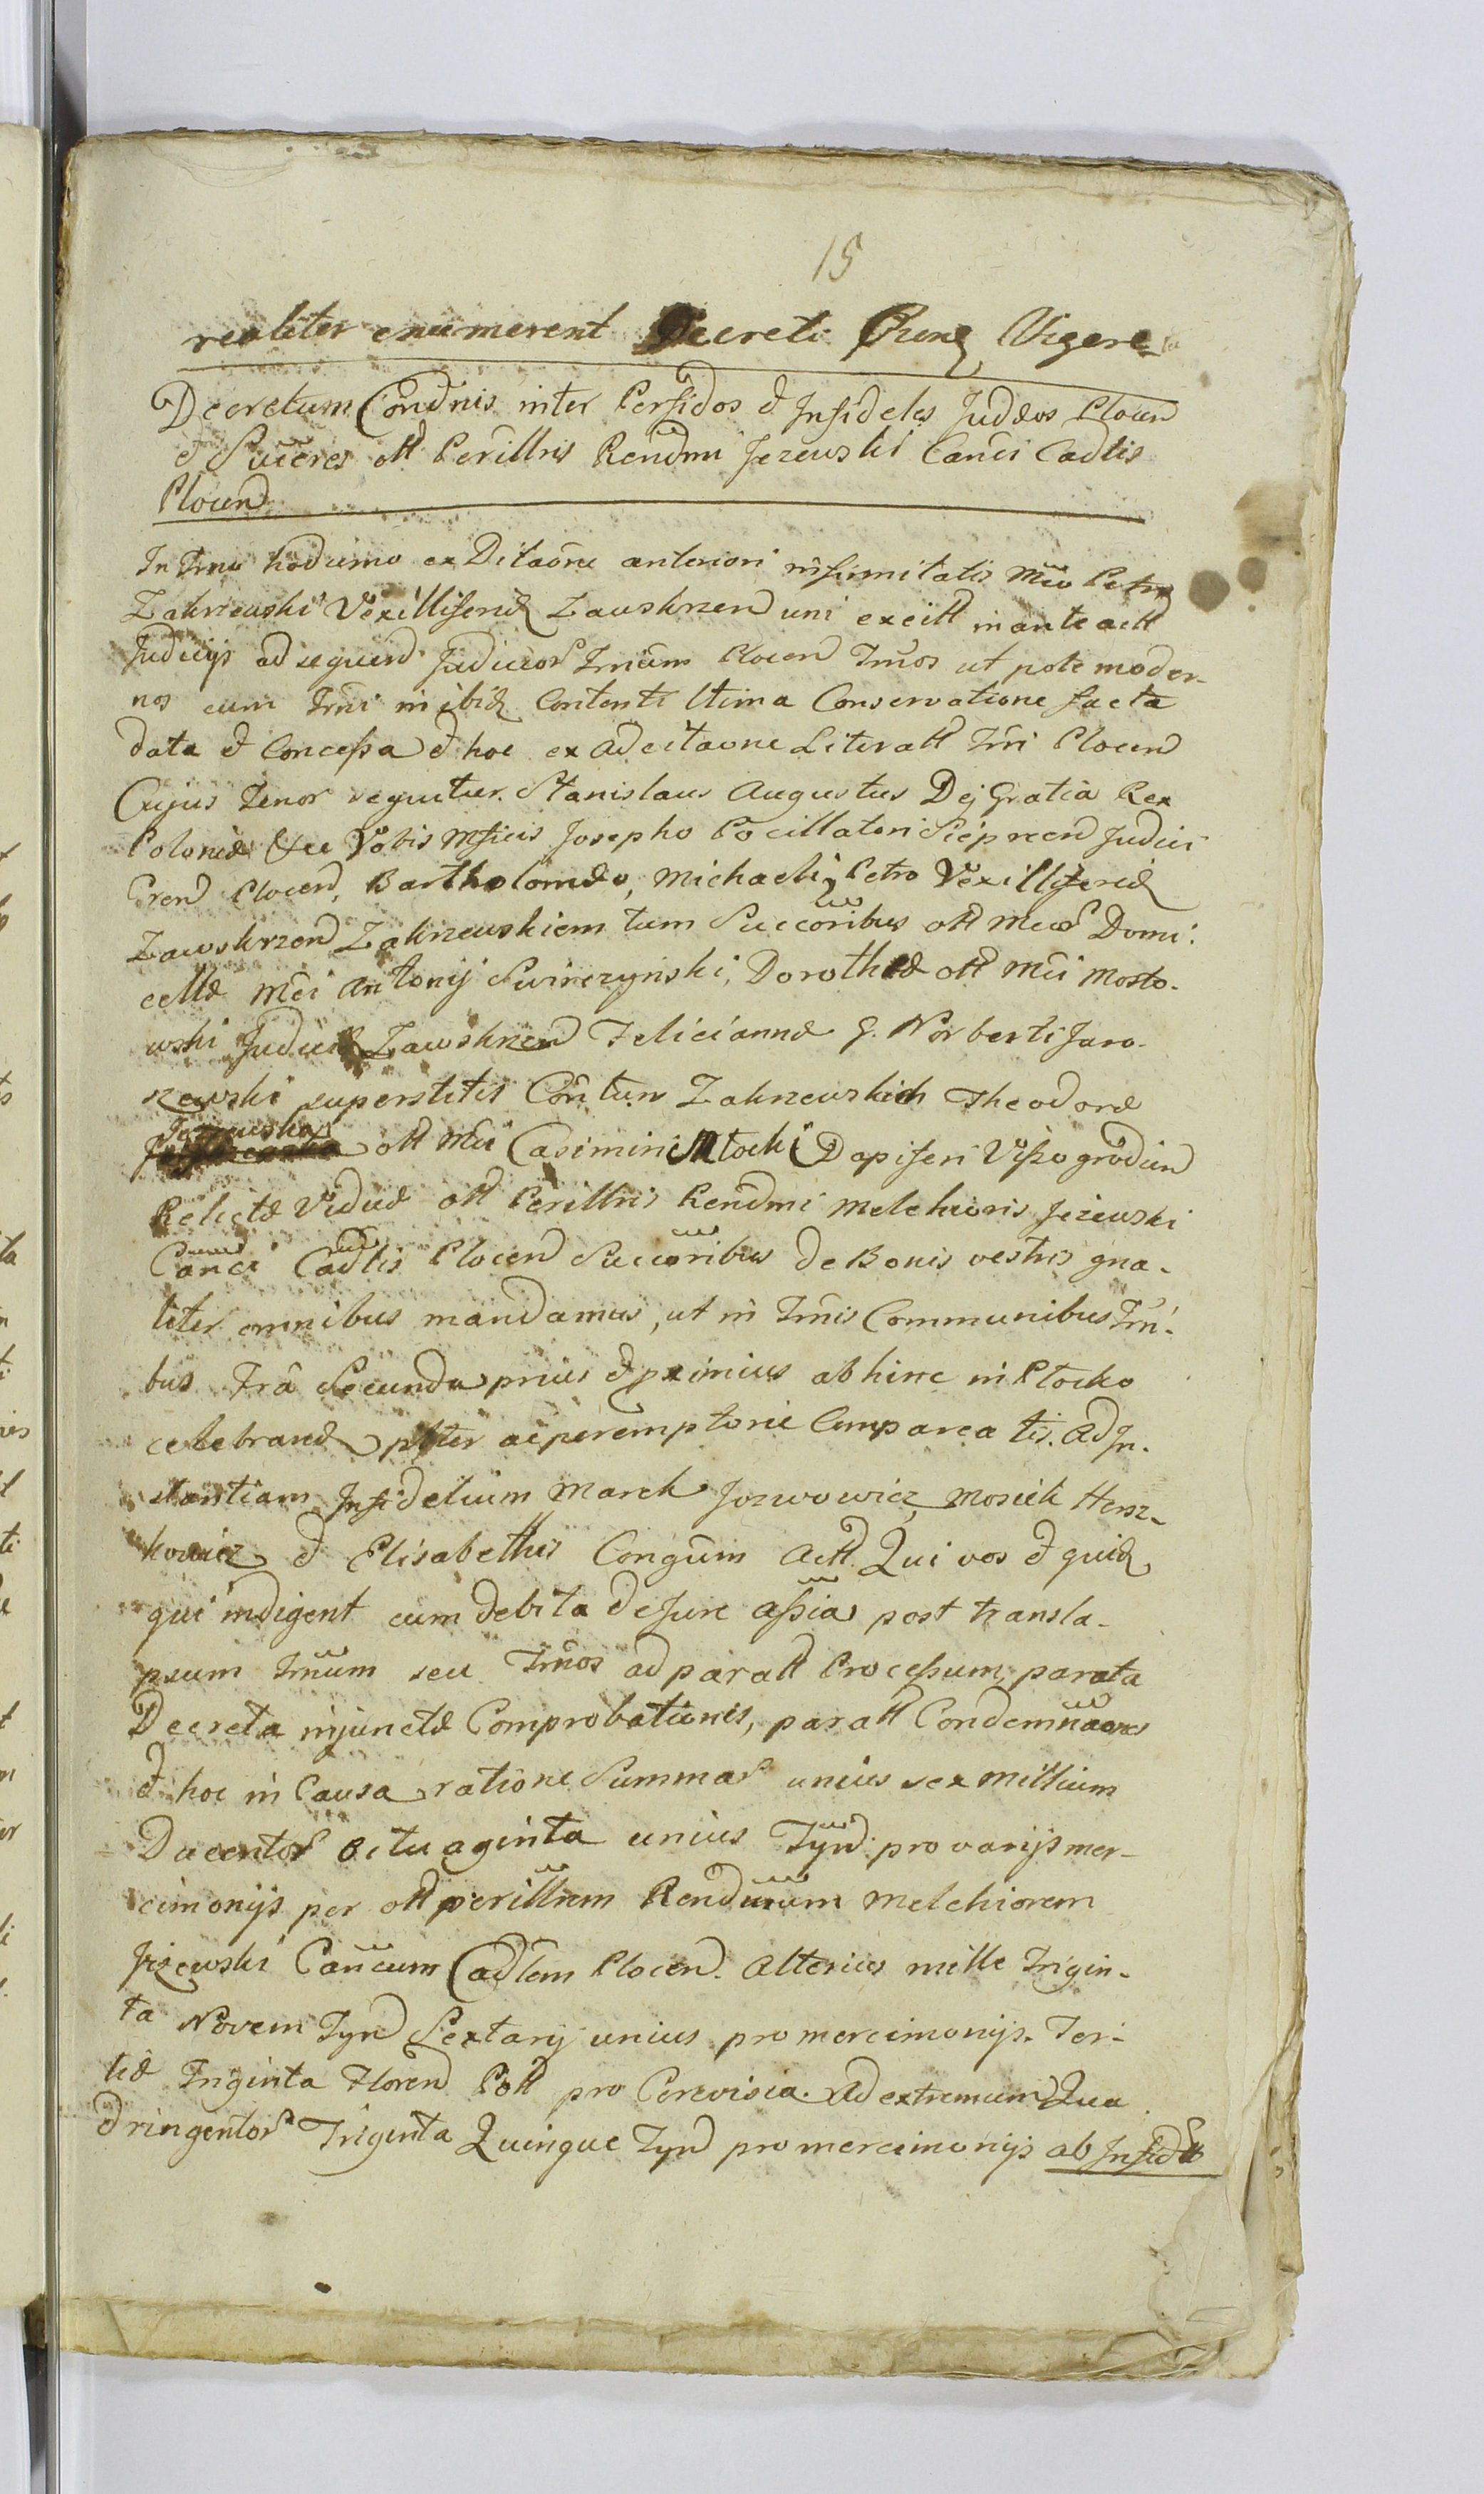 15
realiter enumerent Decreti Vigere
Decretum Condnis inter Perfidos & Infideles Judæos Plocen
& Succres olt Perillris Rendmi Jezewski Canci Cadlis
Plocen
In Trno hodierno ex Ditaone anteriori infirmitatis Mco Petro
Zakrzewski Vexilliferid Zawskrzen uni ex citt in ante actt
Judicijs ad sequend Judicior Trnum Plocen Trnos ut pote moder-
nos cum Trni in ibid Contenti ltima Conservatione facta
data & Concessa & hoc ex Adcitaone Literali Trri Plocen
Cujus Tenor sequitur. Stanislaus Augustus Dej Gratia Rex
Poloniæ &cc Vobis Mficis Josepho Pocillatori Sieprcen Judici
Gren Plocen, Bartholomæo, Michaeli, Petro Vexilliferid
Zawskrzen Zakrzewskiem tum Succoribus olt Mcæ Domi:
cellæ Mci Antonij Swinczynski, Dorotheæ olt Mci Mosto-
wski Judicid Zawskrzen Feliciannæ G. Norberti Jaro-
szewski superstitis Contum Zakrzewskich Theodoræ
Jazewska olt Mci Casimiri Mlocki Dapiferi Viszogrodien
Relictæ Viduæ olt Perillris Rendmi Melchioris Jezewski
Canci Cadlis Plocen Succoribus de Bonis vestris gna-
liter omnibus mandamus, ut in Trnis Communibus Trri-
bus Fra Secunda prius & pximius ab hinc in Plocko
celebrand plter ac peremptorie Compareatis. Ad In-
stantiam Infidelium Marek Jozwowicz, Mosiek Hersz-
kowicz & Elisabethis Congum Actt. Qui vos & quid
qui indigent cum debita de Jure assia post transla-
psum Trnum seu Trnos ad paratt Processum, parata
Decreta injunctæ Comprobationis, paratt Condemnaones
& hoc in Causa ratione Summar unius sex millium
Ducentor Octuaginta unius Tyn pro varijs mer-
cimonijs per olt perillrem Rendmum Melchiorem
Jezewski Cancum Cadlem Plocen. Alterius mille Trigin-
ta Novem Tyn Sextarij unius pro mercimonijs. Ter-
tiæ Triginta Floren Polt pro Cerevisia. Ad extremum Qua
dringentor Triginta Quinque Tyn pro mercimonijs ab Infid